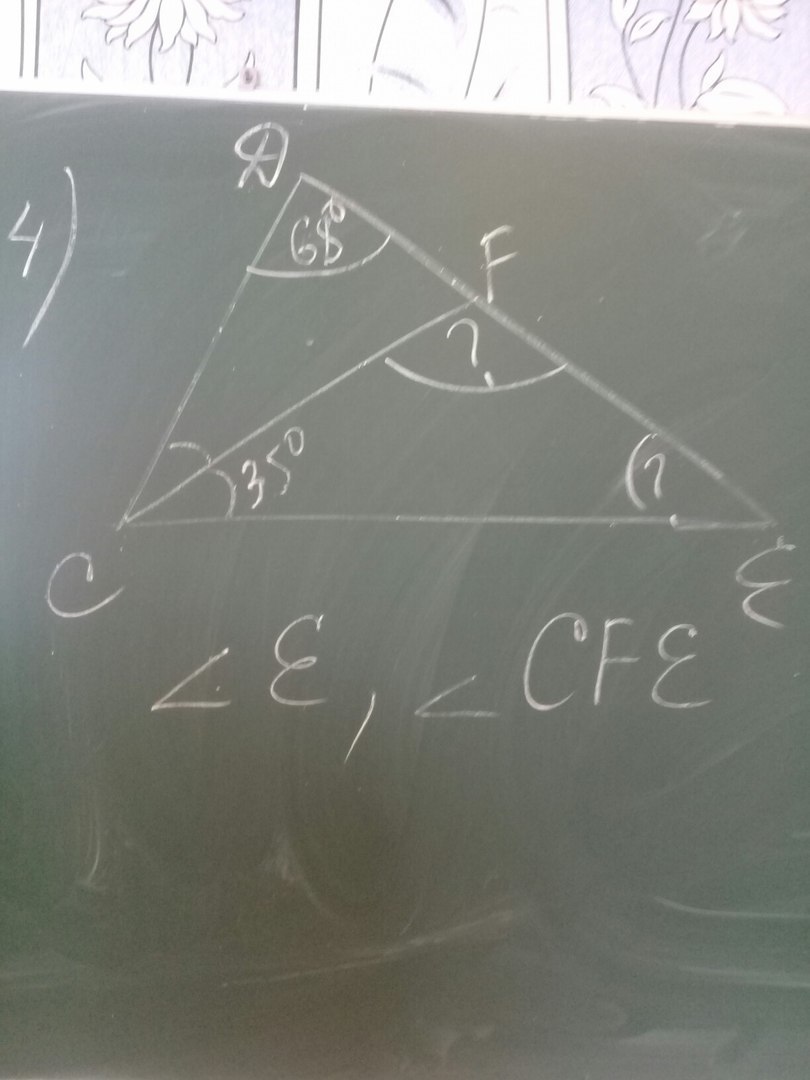 4)
D
68°
F
?
35°
?
C
E
∠E, ∠CFE